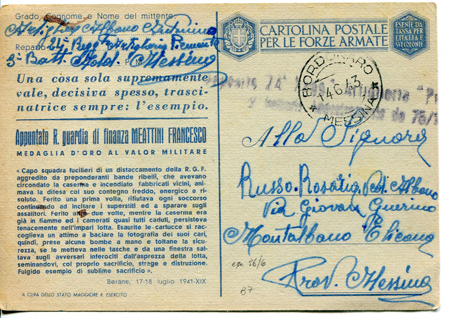 Grado, Cognome e Nome del mittente:
Artigliere Albano Antonino
Reparto 24° Regg. Artiglieria Piemonte
3ª Batt. Messina
Una cosa sola supremamente
vale, decisiva spesso, trasci-
natrice sempre: l'esempio.
Appuntato R. guardia di finanza MEATTINI FRANCESCO
MEDAGLIA D'ORO AL VALOR MILITARE
«Capo squadra fucilieri di un distaccamento della R. G. F.
aggredito da preponderanti bande ribelli, che avevano
circondato la caserma e incendiato fabbricati vicini, ani-
mava la difesa col suo contegno freddo, energico e ri-
soluto. Ferito una prima volta, rifiutava ogni soccorso
continuando ad incitare i superstiti ed a sparare sugli
assalitori. Ferito altre due volte, mentre la caserma era
già in fiamme ed i camerati quasi tutti caduti, persisteva
tenacemente nell'impari lotta. Esaurite le cartucce si rac-
coglieva attorno a baciare la fotografia dei suoi cari,
quindi, prese alcune bombe a mano e toltane la sicu-
rezza, se le metteva nelle tasche e da una finestra sal-
tava sugli avversari inferociti dall'asprezza della lotta,
seminandovi, col proprio sacrificio, strage e distruzione.
Fulgido esempio di sublime sacrificio».
Berane, 17-18 luglio 1941-XIX
A CURA DELLO STATO MAGGIORE R. ESERCITO
CARTOLINA POSTALE
PER LE FORZE ARMATE
ESENTE DA
TASSA PER
L'ITALIA E
VIA CONSOLARE
BORDONARO
14.6.43
MESSINA
Alla Signora
Russo Rosalia in Albano
Via Giovan Guerino
Montalbano Elicona
Prov. Messina
56/6
87